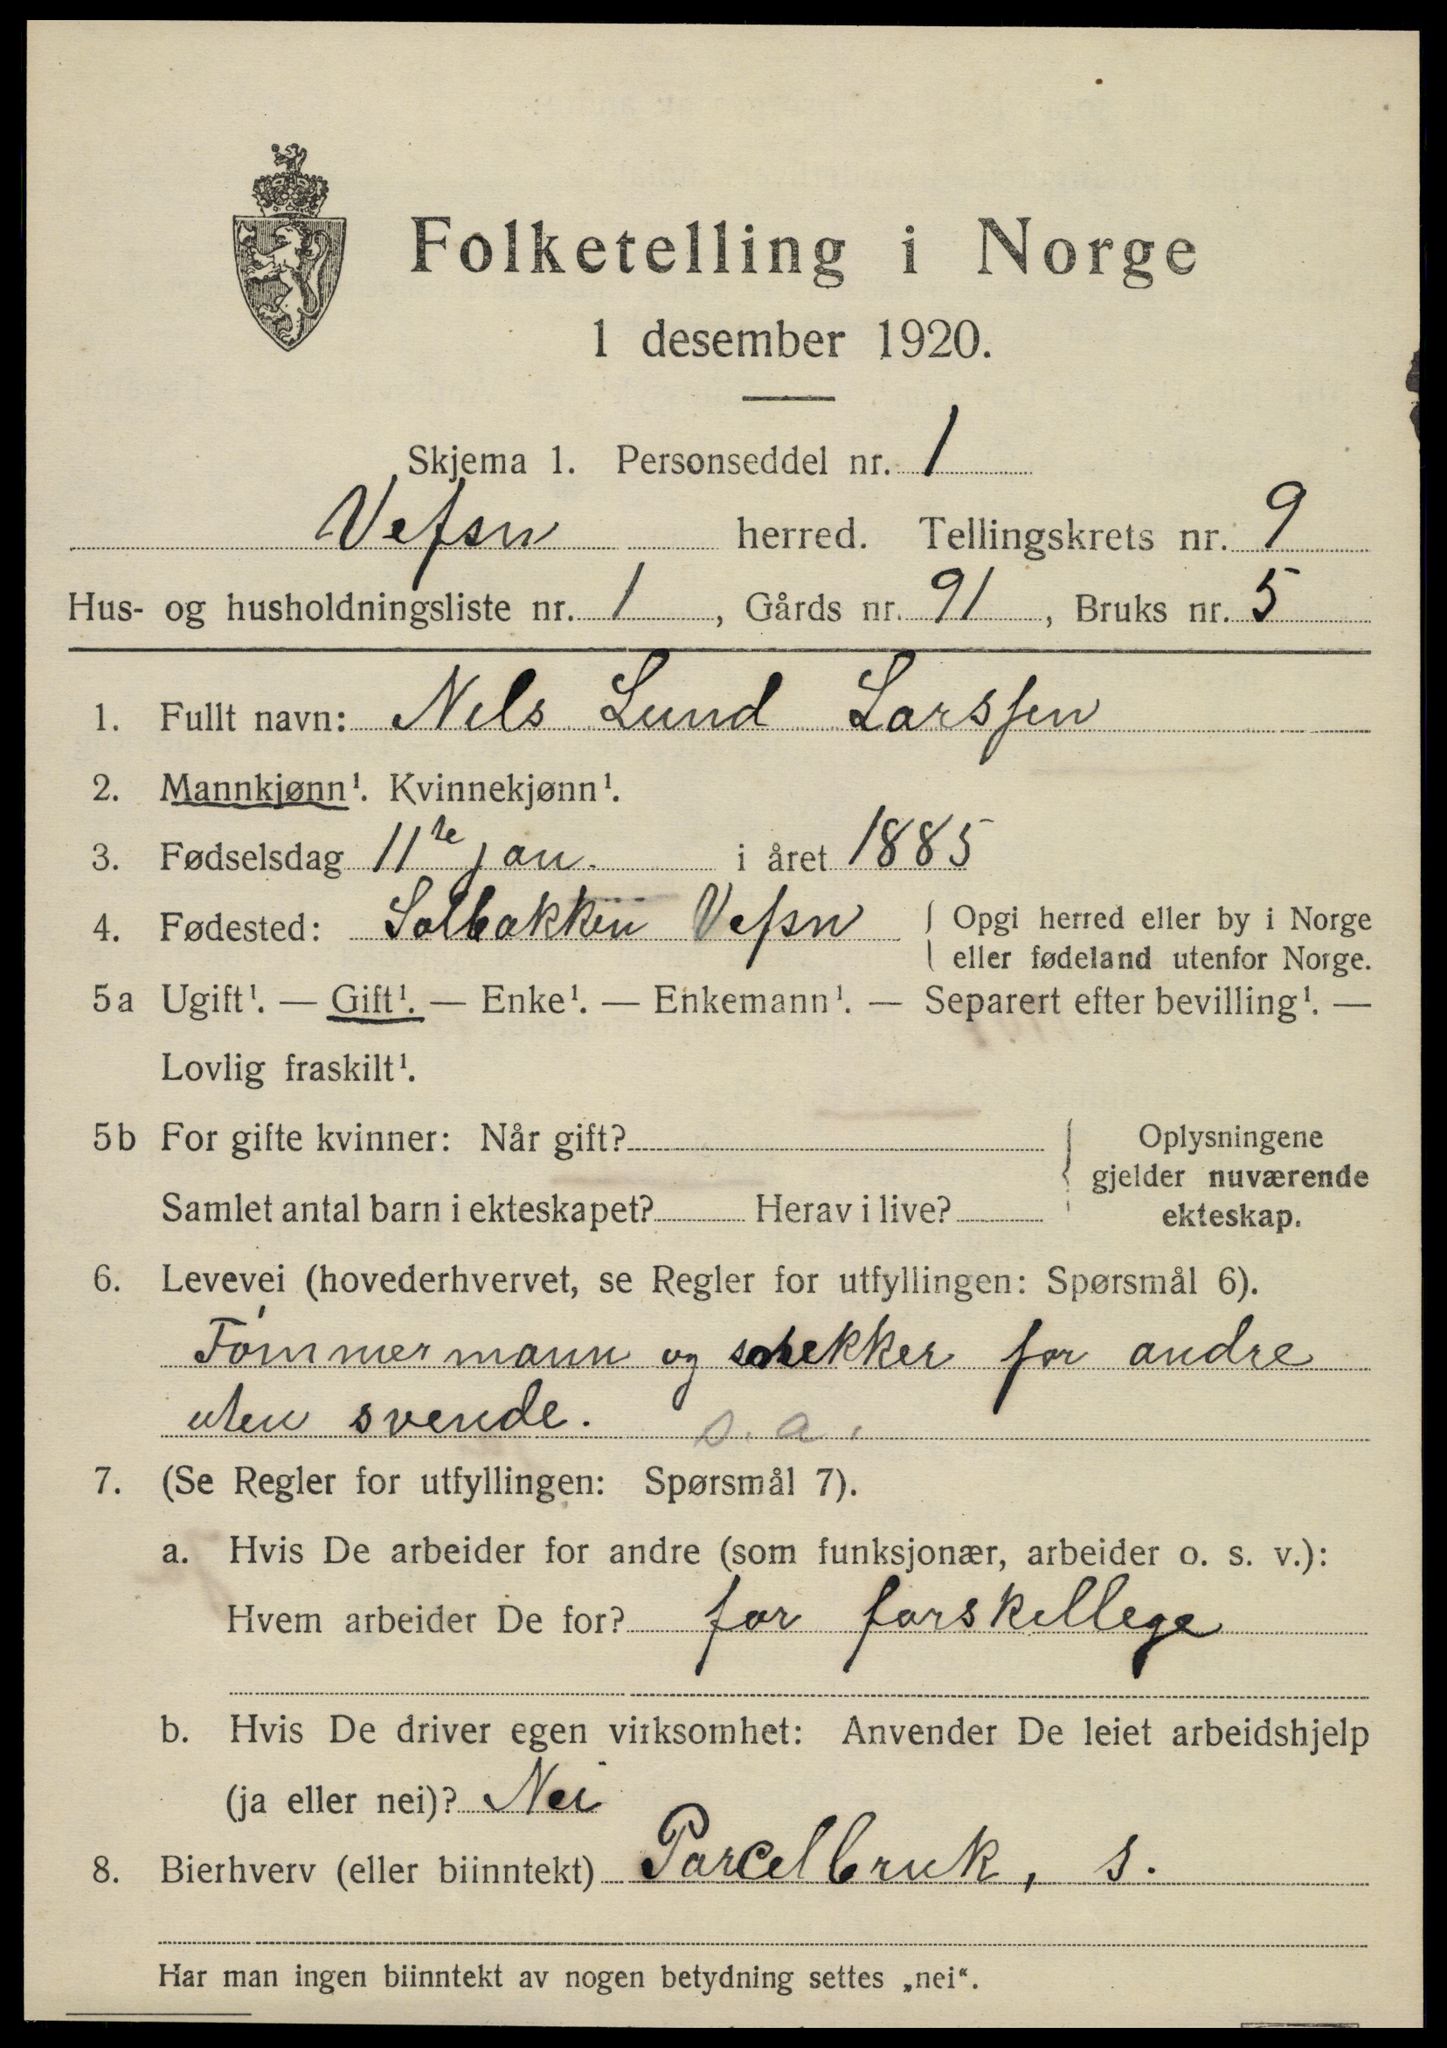 Folketelling i Norge
1 desember 1920.
Skjema 1. Personseddel nr. 1
Vefsn herred. Tellingskrets nr. 9
Hus- og husholdningsliste nr. 1, Gårds nr. 91, Bruks nr. 5
1. Fullt navn: Nils Lund Larssen
2. Mannkjønn¹. Kvinnekjønn¹.
3. Fødselsdag 11te jan. i året 1885
4. Fødested: Solbakken Vefsn { Opgi herred eller by i Norge
eller fødeland utenfor Norge.
5a Ugift¹. — Gift¹. — Enke¹. — Enkemann¹. — Separert efter bevilling¹. —
Lovlig fraskilt¹.
5b For gifte kvinner: Når gift? { Oplysningene
gjelder nuværende
Samlet antal barn i ekteskapet? Herav i live? ekteskap.
6. Levevei (hovederhvervet, se Regler for utfyllingen: Spørsmål 6).
Tømmermann og snekker for andre
uten svende. s. a.
7. (Se Regler for utfyllingen: Spørsmål 7).
a. Hvis De arbeider for andre (som funksjonær, arbeider o. s. v.):
Hvem arbeider De for? for forskellege
b. Hvis De driver egen virksomhet: Anvender De leiet arbeidshjelp
(ja eller nei)? Nei
8. Bierhverv (eller biinntekt) Parcelbruk, s.
Har man ingen biinntekt av nogen betydning settes „nei“.